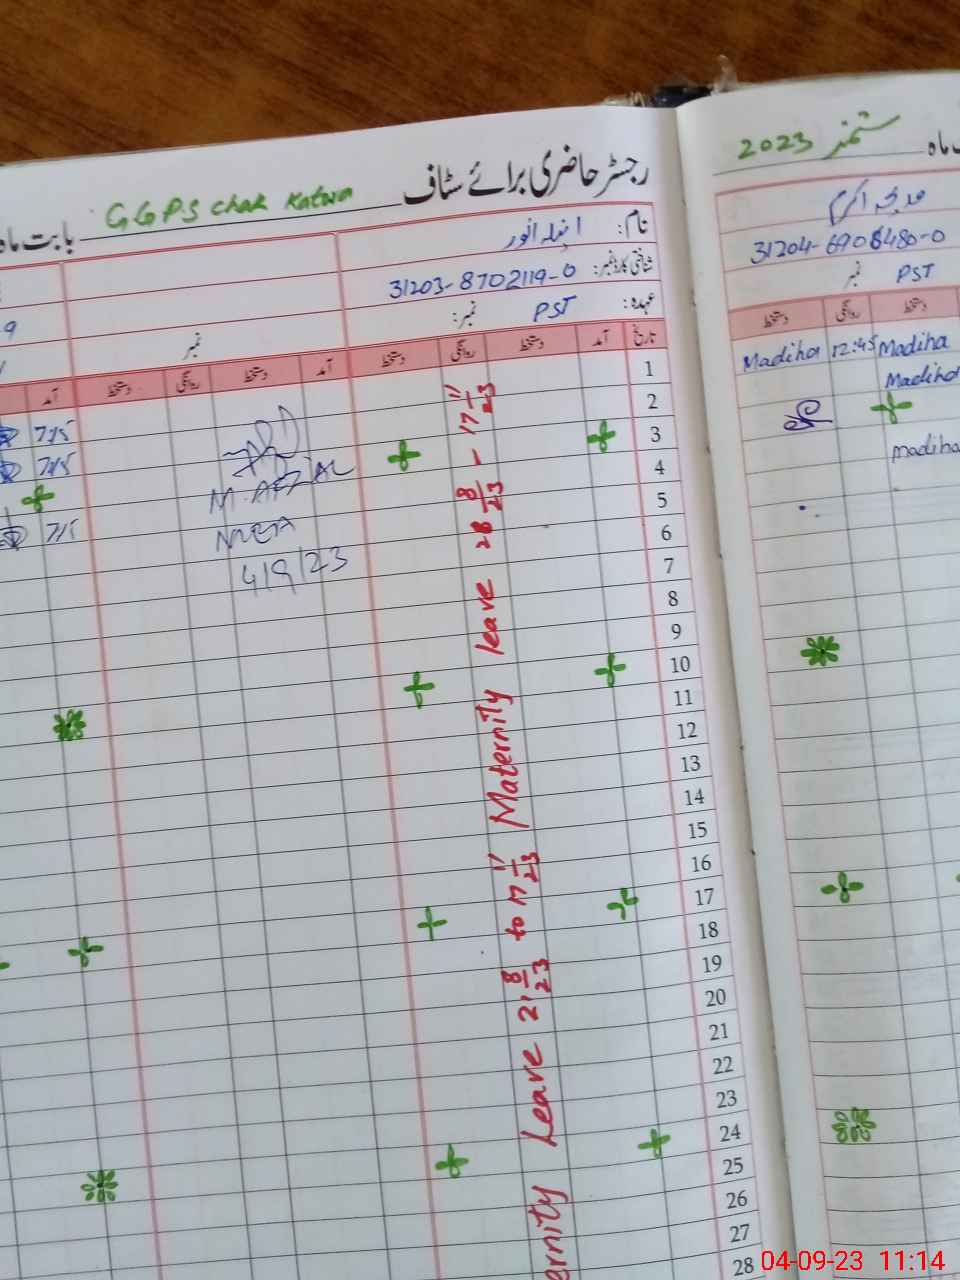 رجسٹر حاضری برائے سٹاف GGPS Chak Katwa بابت ماہ
نام: انیلہ انور
شناختی کارڈ نمبر: 31203-8702119-0
عہدہ: PST نمبر:
نمبر
تاریخ آمد دستخط روانگی دستخط آمد دستخط روانگی دستخط آمد
1
2
3
4
5
6
7
8
9
10
11
12
13
14
15
16
17
18
19
20
21
22
23
24
25
26
27
28
7/5
7/5
7/5
M. AFZAL
MEA
4/9/23
Maternity leave 28 8/23 - 17 11/23
ernity Leave 21 8/23 to 17 11/23
ماہ ستمبر 2023
مدیحہ اکرم
31204-6908480-0
PST نمبر
دستخط روانگی دستخط
Madiha 12:45 Madiha
Madiha
madiha
04-09-23 11:14